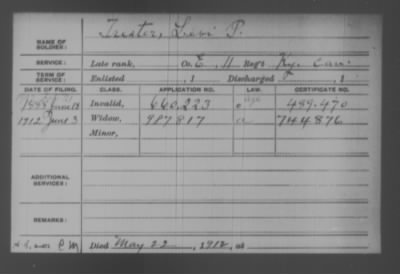 NAME OF SOLDIER: Trester, Levi P.
SERVICE: Late rank, Co. E, 11 Reg't Ky. Cav.
TERM OF SERVICE: Enlisted , 1 Discharged , 1
DATE OF FILING. CLASS. APPLICATION NO. LAW. CERTIFICATE NO.
1888 June 18 Invalid, 660,223 489.470
1912 June 3 Widow, 987817 a 744,876
Minor,
ADDITIONAL SERVICES:
REMARKS:
Died May 22, 1912, at